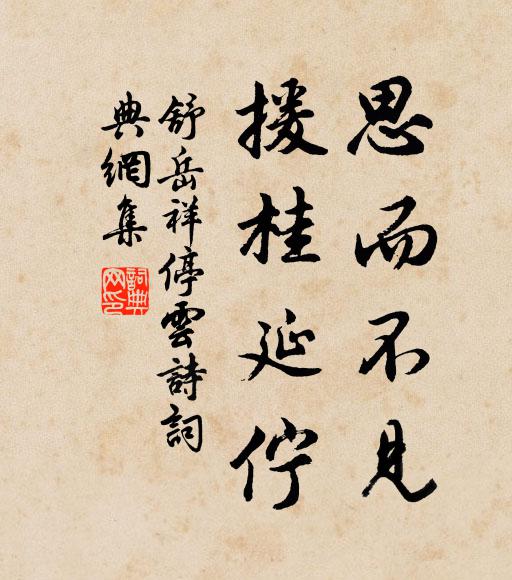 思而不見
援桂延佇
舒岳祥停雲詩詞
典網集
詞典網印